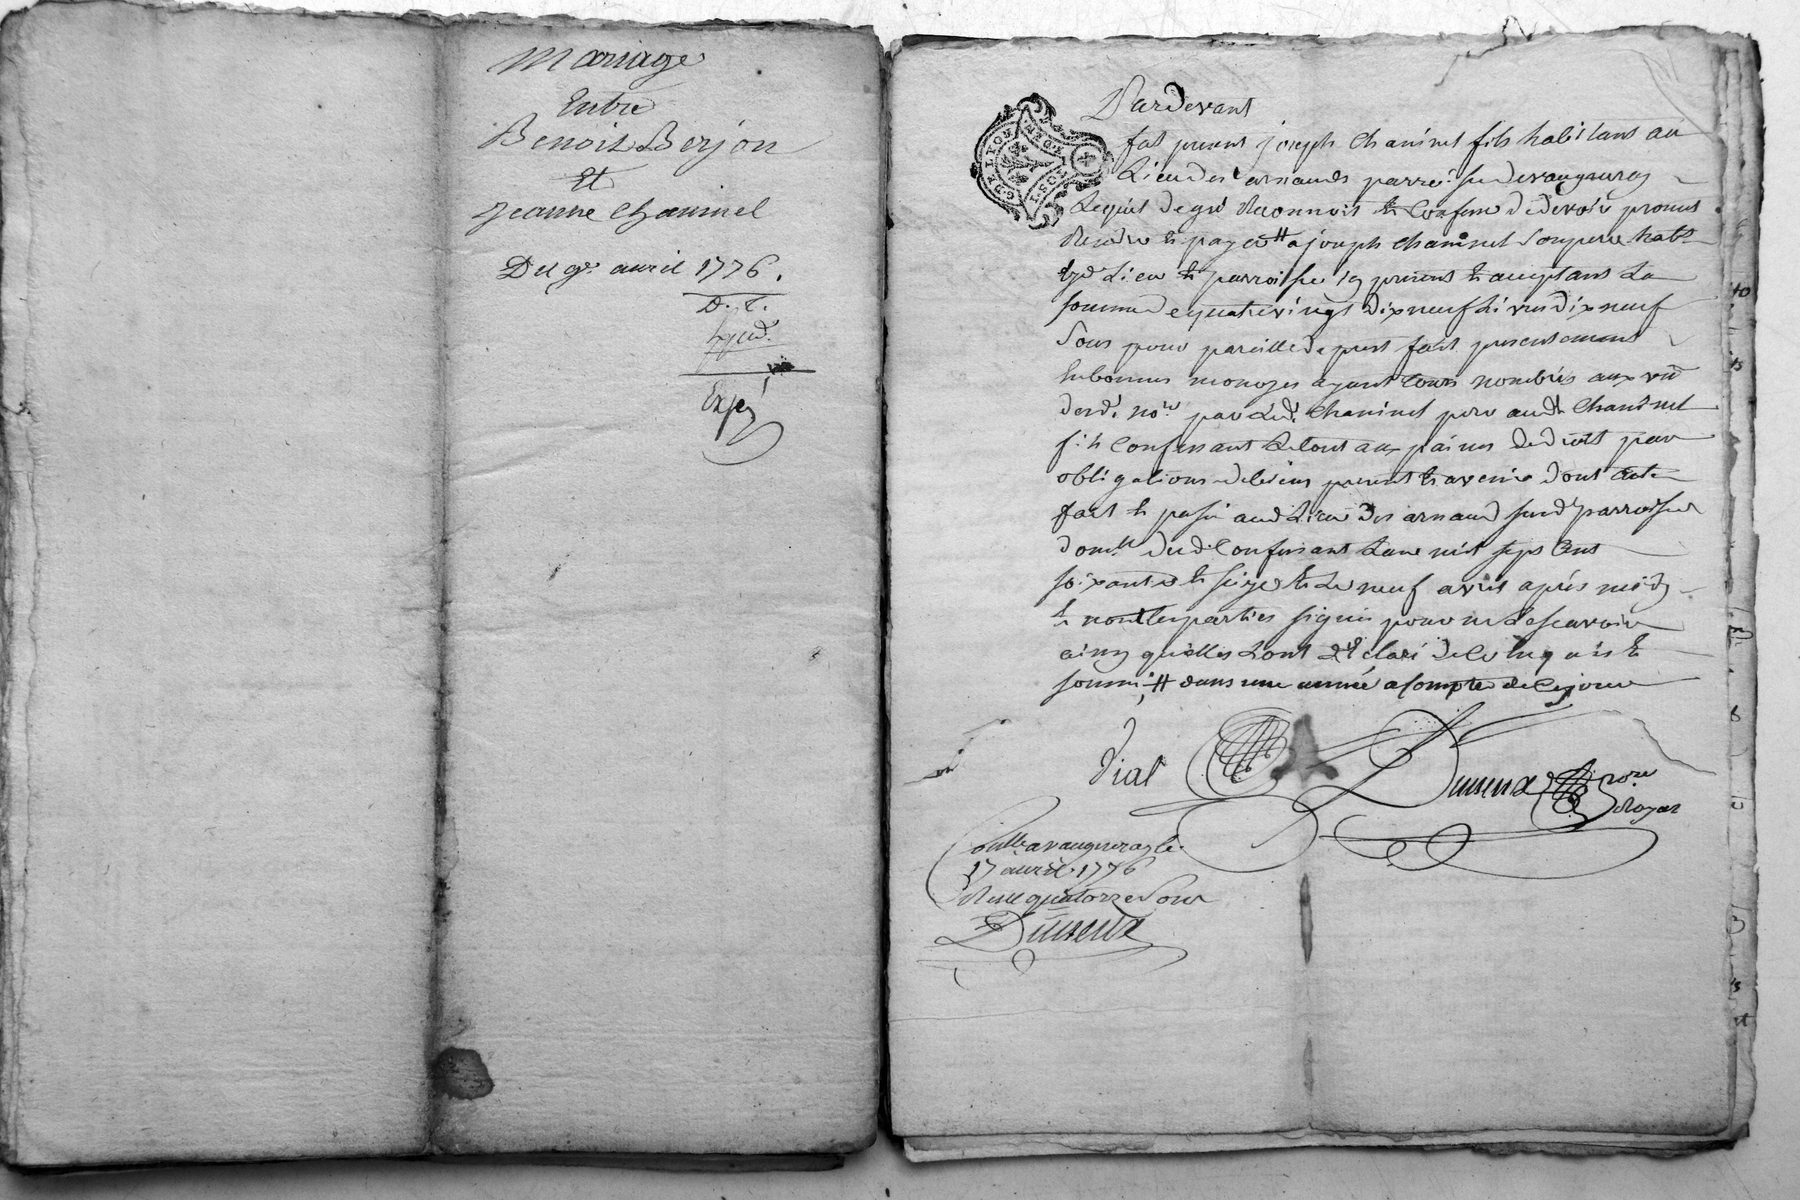 Mariage
Entre
Benoit Berjon
Et
Jeanne chaninel
Du 9e. avril 1776.
D. C.
Exp
G DE LYON
Pardevant
fut present joseph Chaninel fils habitant au
Lieu des arnauds parre. de vaugneray
Lequel de gré reconnoit et Confesse devoir promet
rendre et payer # a joseph Chaninel son pere habt.
aud Lieu et parroisse icy present et acceptant La
somme de quatrevingt dix neuf Livres dix neuf
Sous pour pareille de prest fait presentement
en bonnes monoyes ayant Cours nombrés aux vue
desd. no.re par Led. Chaninel pere aud. Chaninel
fils Confessant Le tout aux paines de droit par
obligations de biens present et avenir dont acte
fait et passé aud Lieu des arnaud susd parroisse
domlle dud. Confessant L'an mil sept Cent
soixante et seize et Le neuf avril après midy
et nont les parties signé pour ne le scavoir
ainsy quelles ont declaré de ce enquis et
sommé; # dans une année a compter de ce jour
Vial
Dumeux nore
Royal
Conllé a vaugneray le
17 avril 1776
Reçu quatorze sous
Dumeux